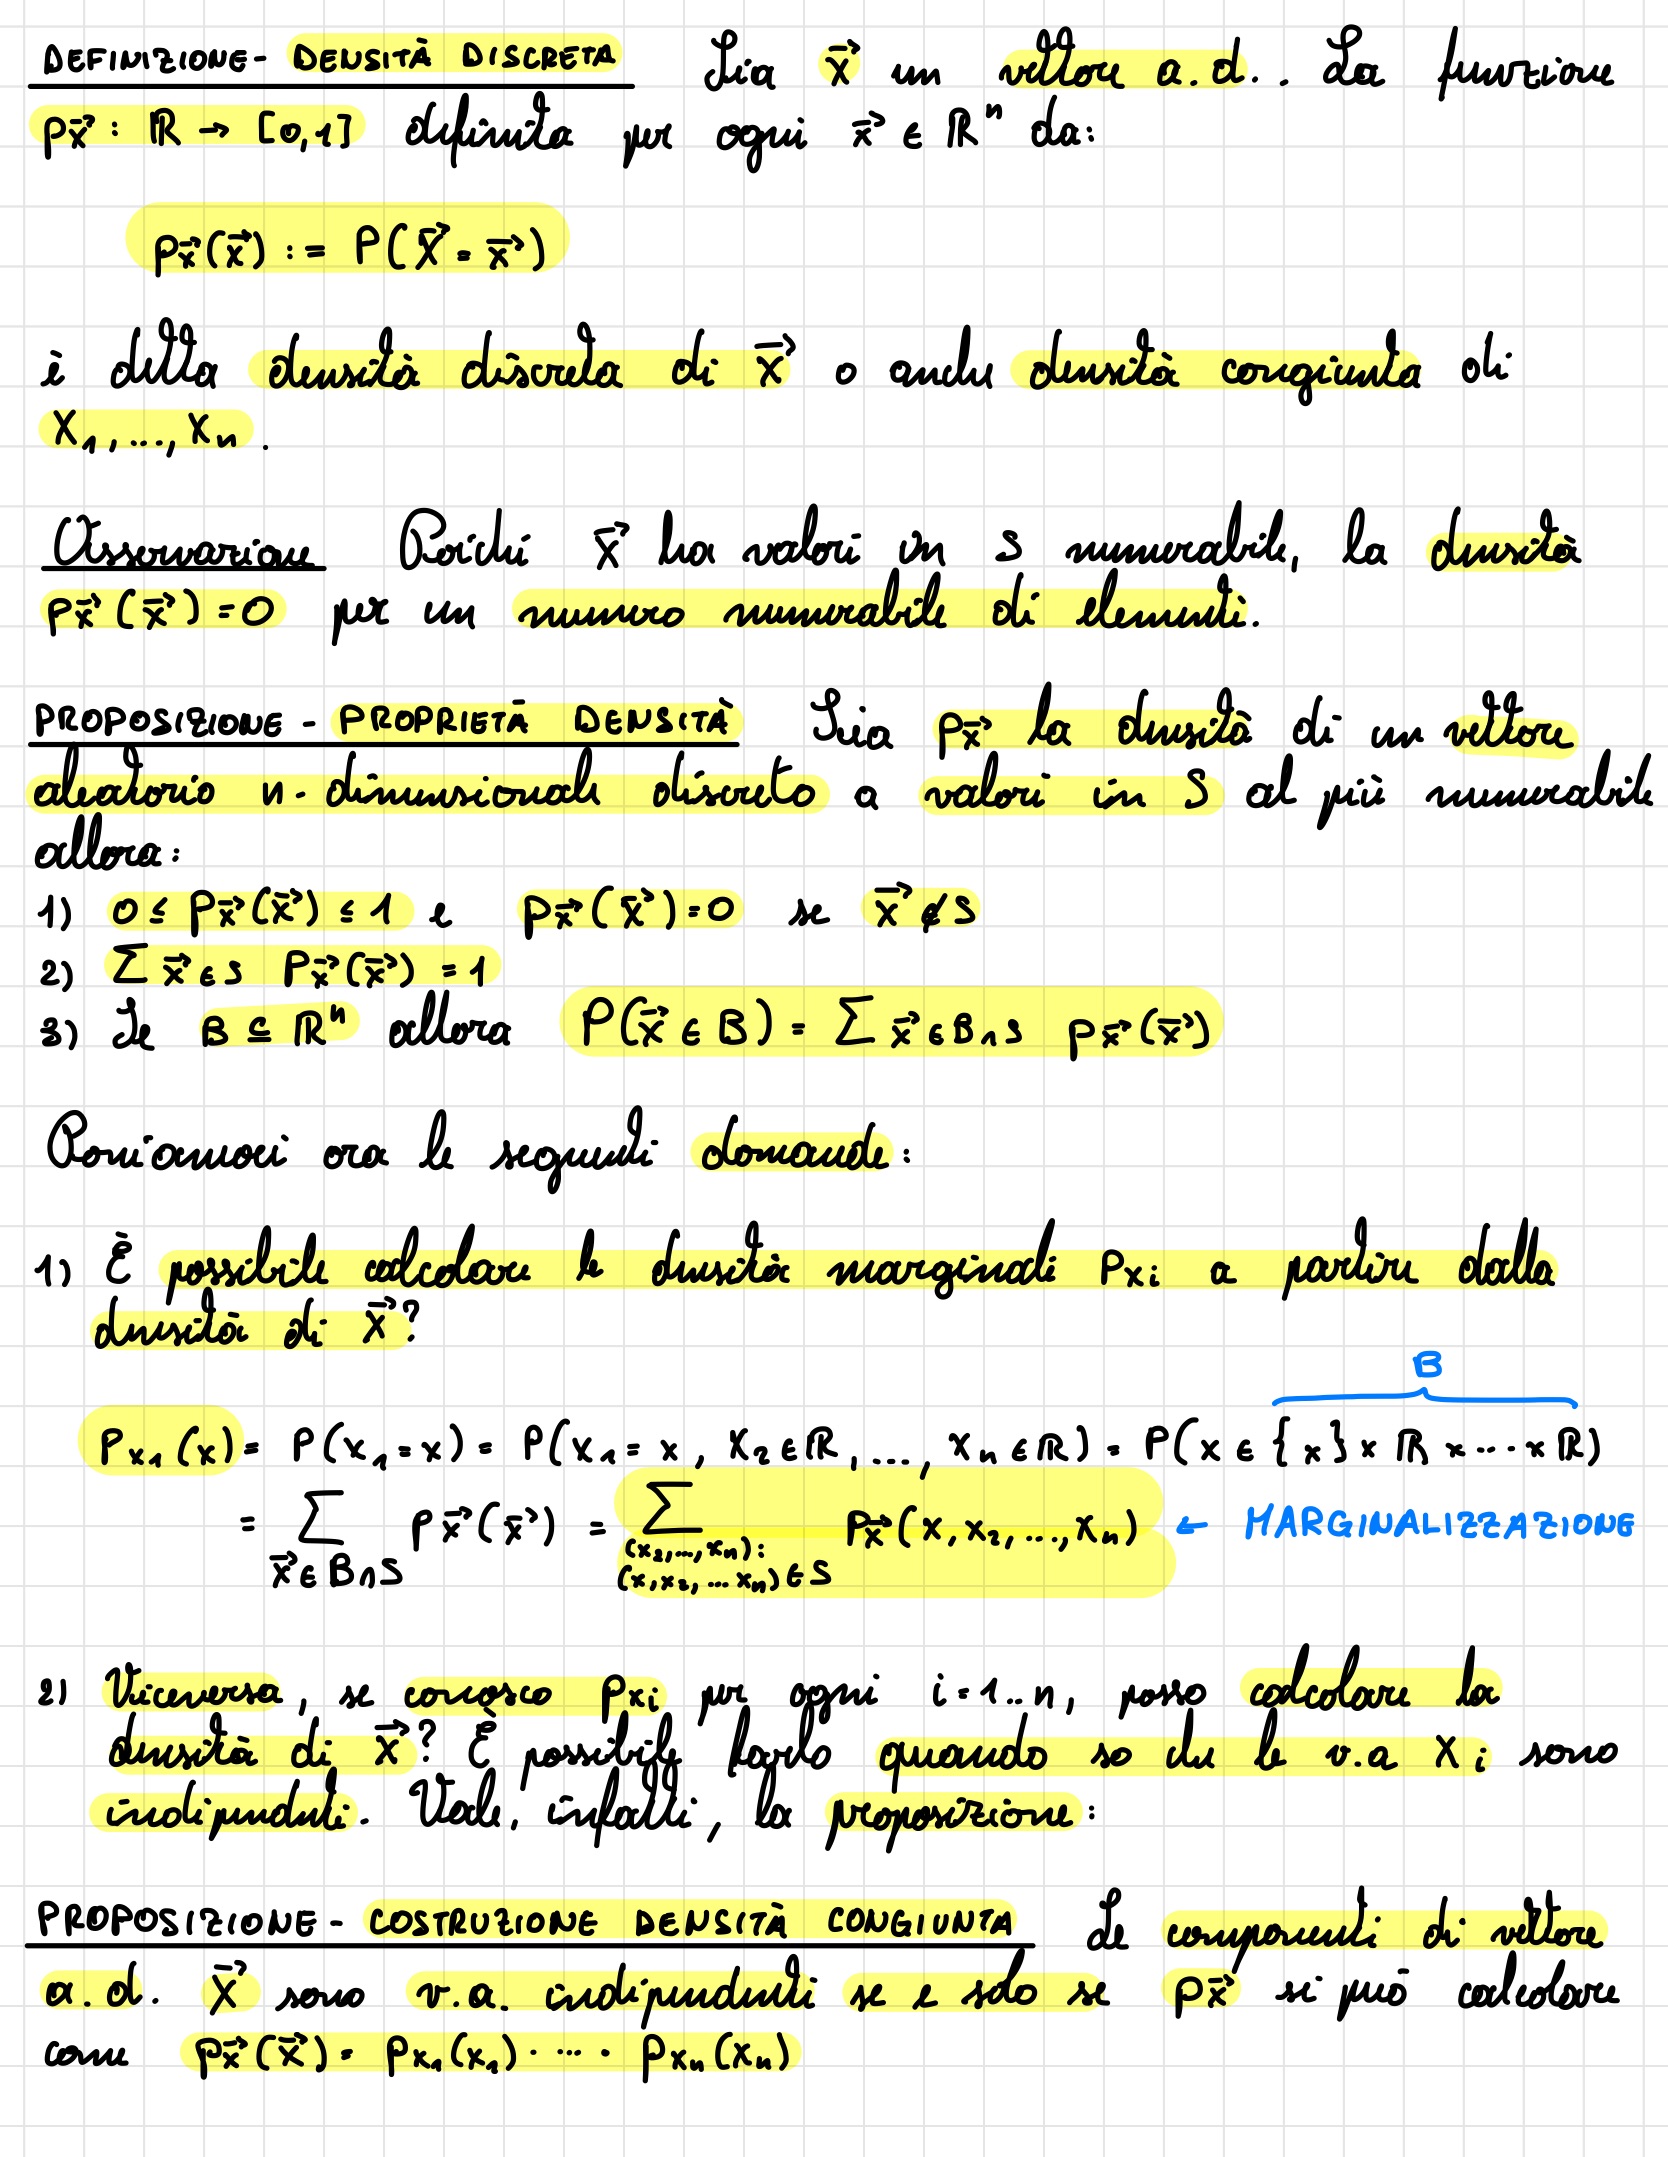 DEFINIZIONE - DENSITÀ DISCRETA Sia X⃗ un vettore a.d.. La funzione
pX⃗ : ℝ → [0,1] definita per ogni x⃗ ∈ ℝⁿ da:
pX⃗(x⃗) := P(X⃗ = x⃗)
è detta densità discreta di X⃗ o anche densità congiunta di
X₁, ..., Xₙ.
Osservazione Poichè X⃗ ha valori in S numerabile, la densità
pX⃗(x⃗) = 0 per un numero numerabile di elementi.
PROPOSIZIONE - PROPRIETÀ DENSITÀ Sia pX⃗ la densità di un vettore
aleatorio n-dimensionale discreto a valori in S al più numerabile
allora:
1) 0 ≤ pX⃗(x⃗) ≤ 1 e pX⃗(x⃗) = 0 se x⃗ ∉ S
2) ∑ x⃗ ∈ S pX⃗(x⃗) = 1
3) Se B ⊆ ℝⁿ allora P(X⃗ ∈ B) = ∑ x⃗ ∈ B∩S pX⃗(x⃗)
Poniamoci ora le seguenti domande:
1) È possibile calcolare le densità marginali pxi a partire dalla
densità di X⃗?
B
Px₁(x) = P(X₁ = x) = P(X₁ = x, X₂ ∈ ℝ, ..., Xₙ ∈ ℝ) = P(X ∈ {x} × ℝ × ... × ℝ)
= ∑ x⃗ ∈ B∩S pX⃗(x⃗) = ∑ (x₂, ..., xₙ): (x, x₂, ... xₙ) ∈ S pX⃗(x, x₂, ..., xₙ) ← MARGINALIZZAZIONE
2) Viceversa, se conosco pxi per ogni i = 1..n, posso calcolare la
densità di X⃗? È possibile farlo quando so che le v.a Xi sono
indipendenti. Vale, infatti, la proposizione:
PROPOSIZIONE - COSTRUZIONE DENSITÀ CONGIUNTA Le componenti di vettore
a.d. X⃗ sono v.a. indipendenti se e solo se pX⃗ si può calcolare
come pX⃗(x⃗) = px₁(x₁) · ... · pxₙ(xₙ)